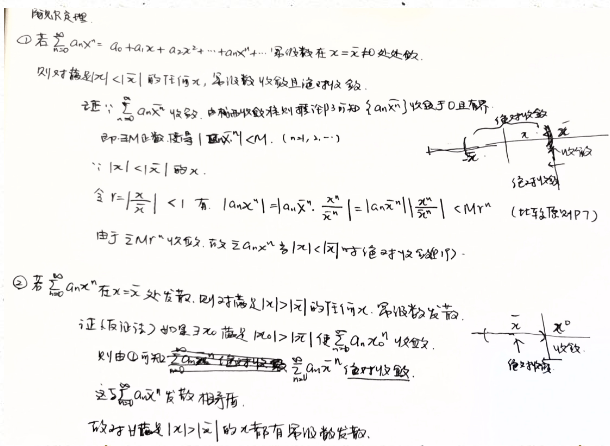 阿贝尔定理.
① 若 $\sum_{n=0}^{\infty} a_n x^n = a_0 + a_1 x + a_2 x^2 + \cdots + a_n x^n + \cdots$ 幂级数在 $x = \bar{x} \neq 0$ 处收敛.
则对满足 $|x| < |\bar{x}|$ 的任何 x, 幂级数收敛且绝对收敛.
证: ∵ $\sum_{n=0}^{\infty} a_n \bar{x}^n$ 收敛, 由柯西收敛准则推论P3可知 $\{a_n \bar{x}^n\}$ 收敛于0且有界.
即 ∃M正数使得 $|a_n \bar{x}^n| < M$. (n=1, 2, …)
∵ $|x| < |\bar{x}|$ 的 x.
令 $r = |\frac{x}{\bar{x}}| < 1$ 有 $|a_n x^n| = |a_n \bar{x}^n \cdot \frac{x^n}{\bar{x}^n}| = |a_n \bar{x}^n| |\frac{x^n}{\bar{x}^n}| < M r^n$ (比较原则P7)
由于 $\sum M r^n$ 收敛. 故 $\sum a_n x^n$ 当 $|x| < |\bar{x}|$ 时绝对收敛
绝对收敛
x $\bar{x}$
收敛
绝对收敛
② 若 $\sum_{n=0}^{\infty} a_n x^n$ 在 $x = \bar{x}$ 处发散. 则对满足 $|x| > |\bar{x}|$ 的任何 x. 幂级数发散.
证 (反证法) 如果 ∃ $x_0$ 满足 $|x_0| > |\bar{x}|$ 使 $\sum_{n=0}^{\infty} a_n x_0^n$ 收敛.
则由①可知 $\sum_{n=0}^{\infty} a_n \bar{x}^n$ 绝对收敛.
这与 $\sum_{n=0}^{\infty} a_n \bar{x}^n$ 发散相矛盾.
故对 ∀ 满足 $|x| > |\bar{x}|$ 的 x 都有幂级数发散.
$\bar{x}$ $x^0$
收敛
绝对收敛